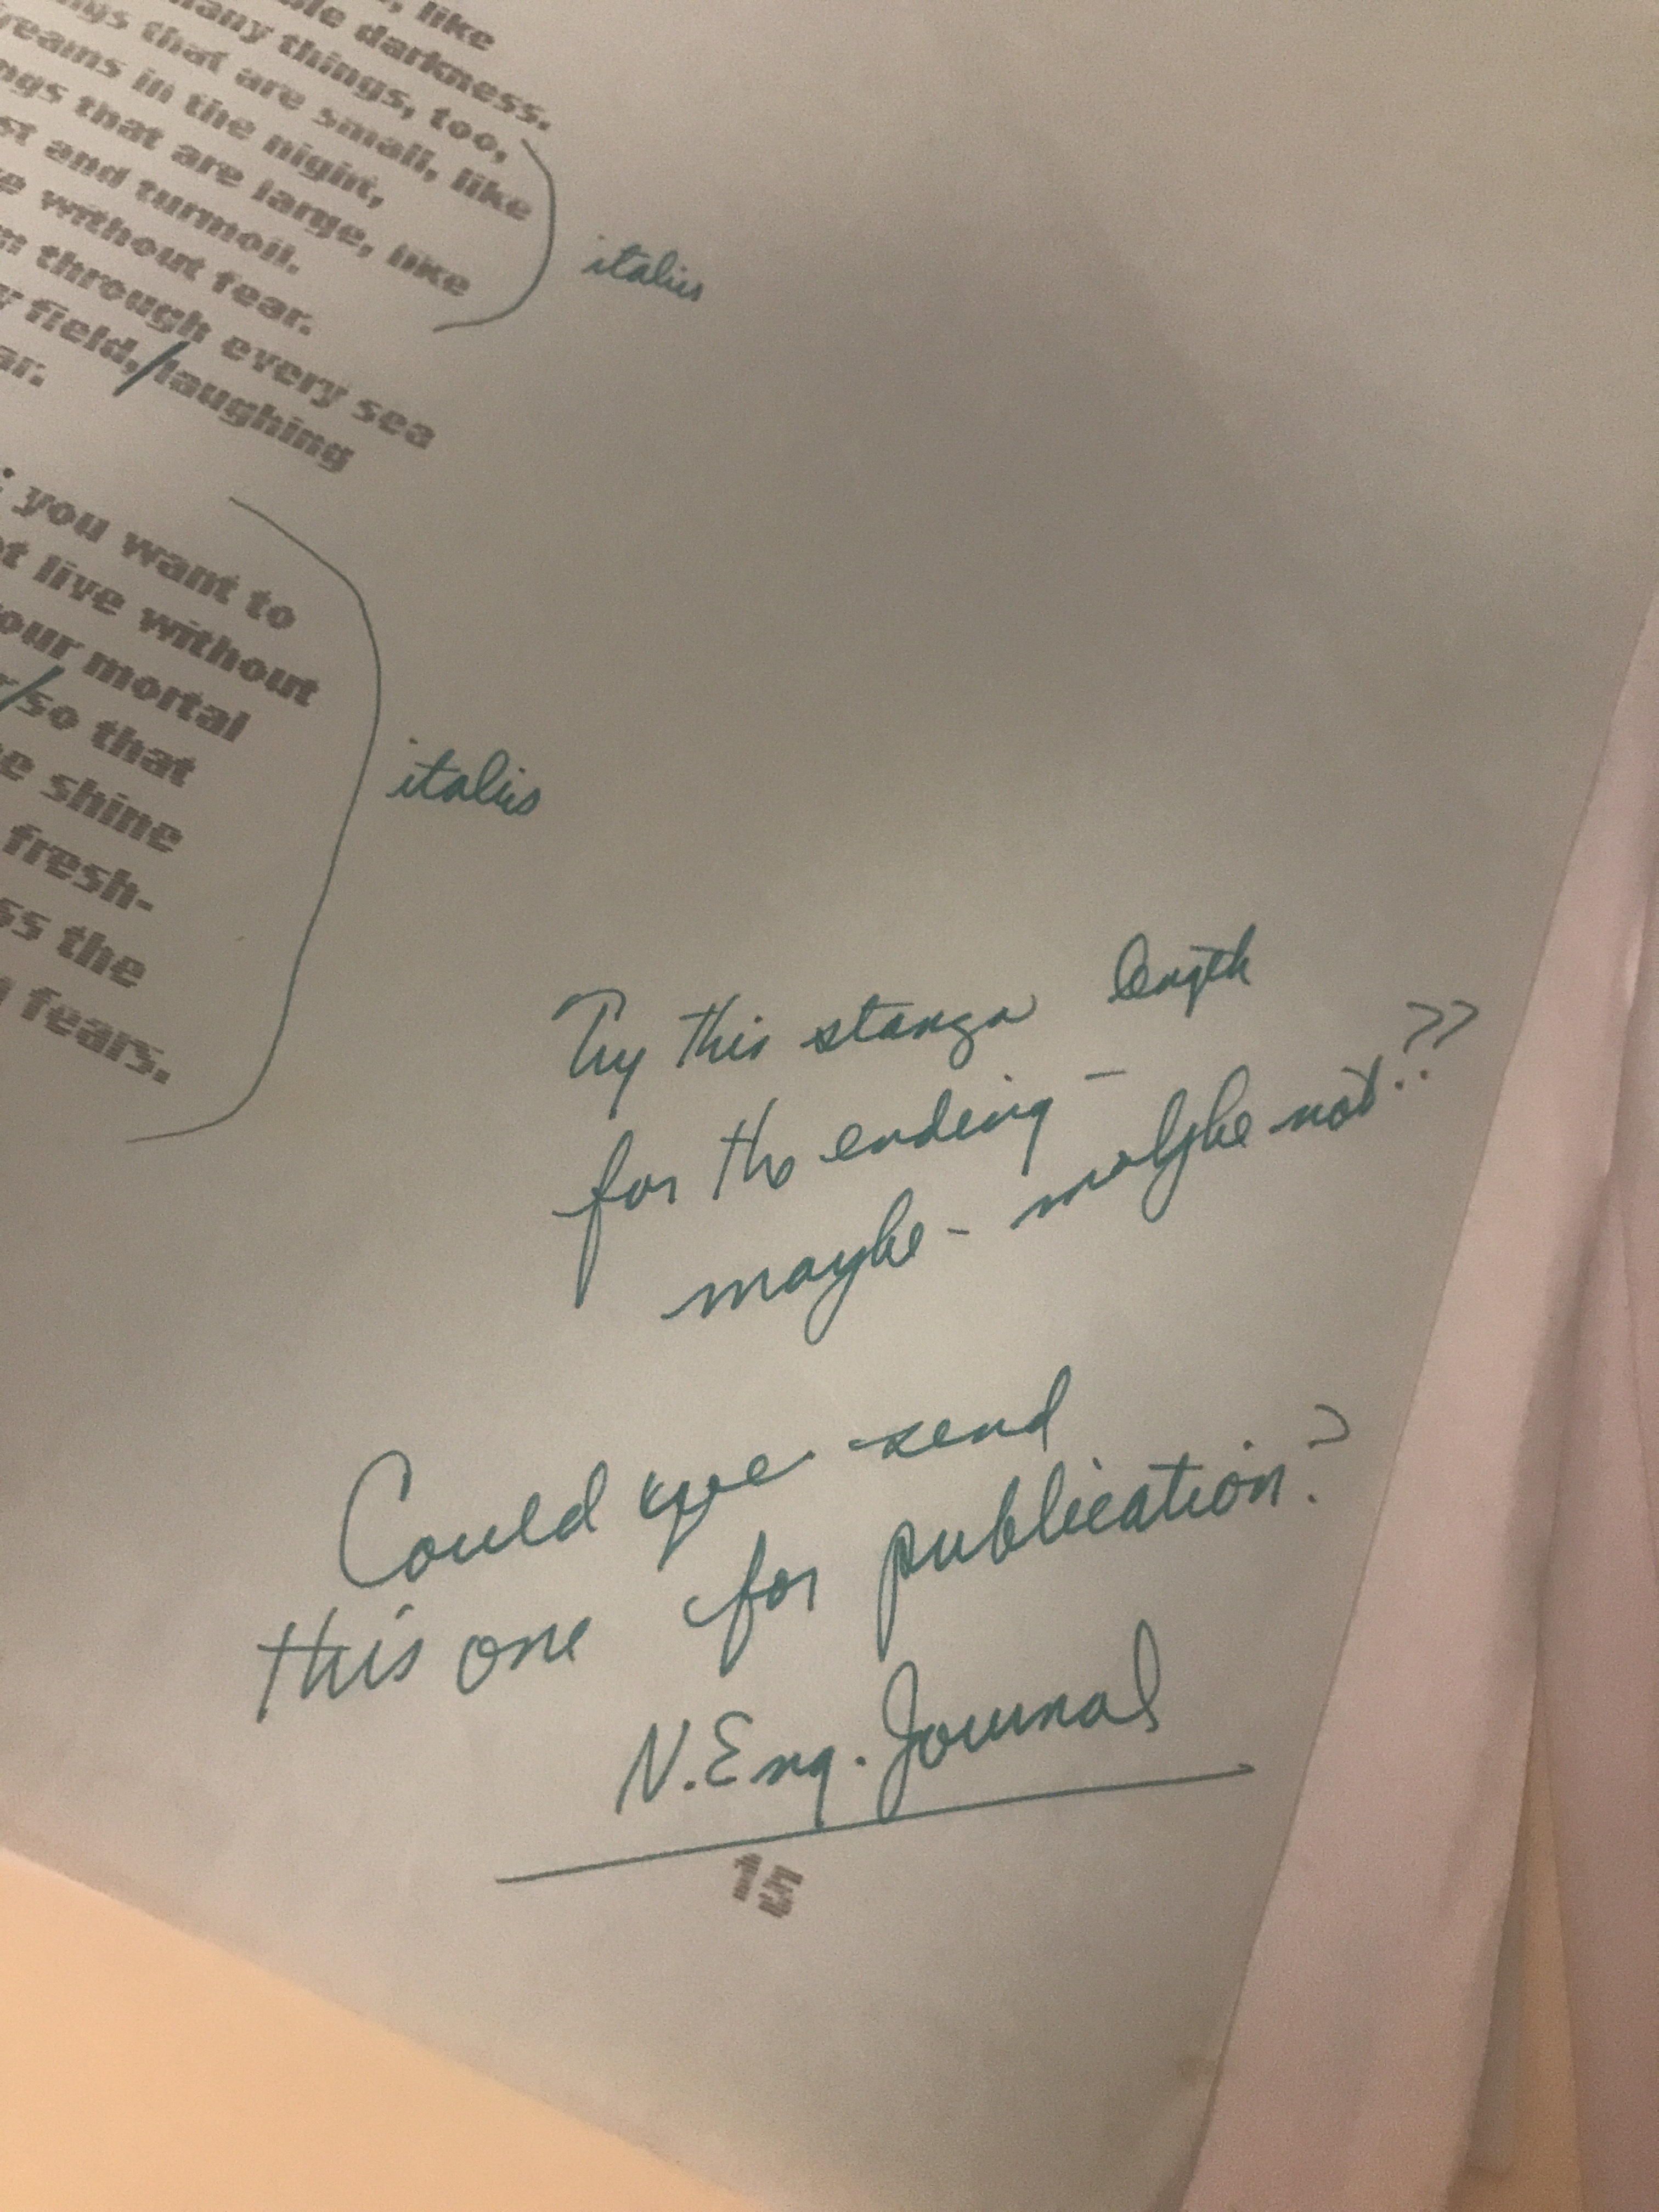 , like
darkness.
many things, too,
that are small, like
in the night,
that are large, like
and turmoil.
without fear.
through every sea
field,/laughing
italics
you want to
live without
mortal
/so that
shine
fresh-
the
fears.
italics
Try this stanza length
for the ending –
maybe - maybe not??
Could you send
this one for publication?
N. Eng. Journal
15